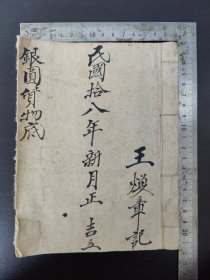 王煥章記
民國拾八年新月正 吉立
銀圓貨物底